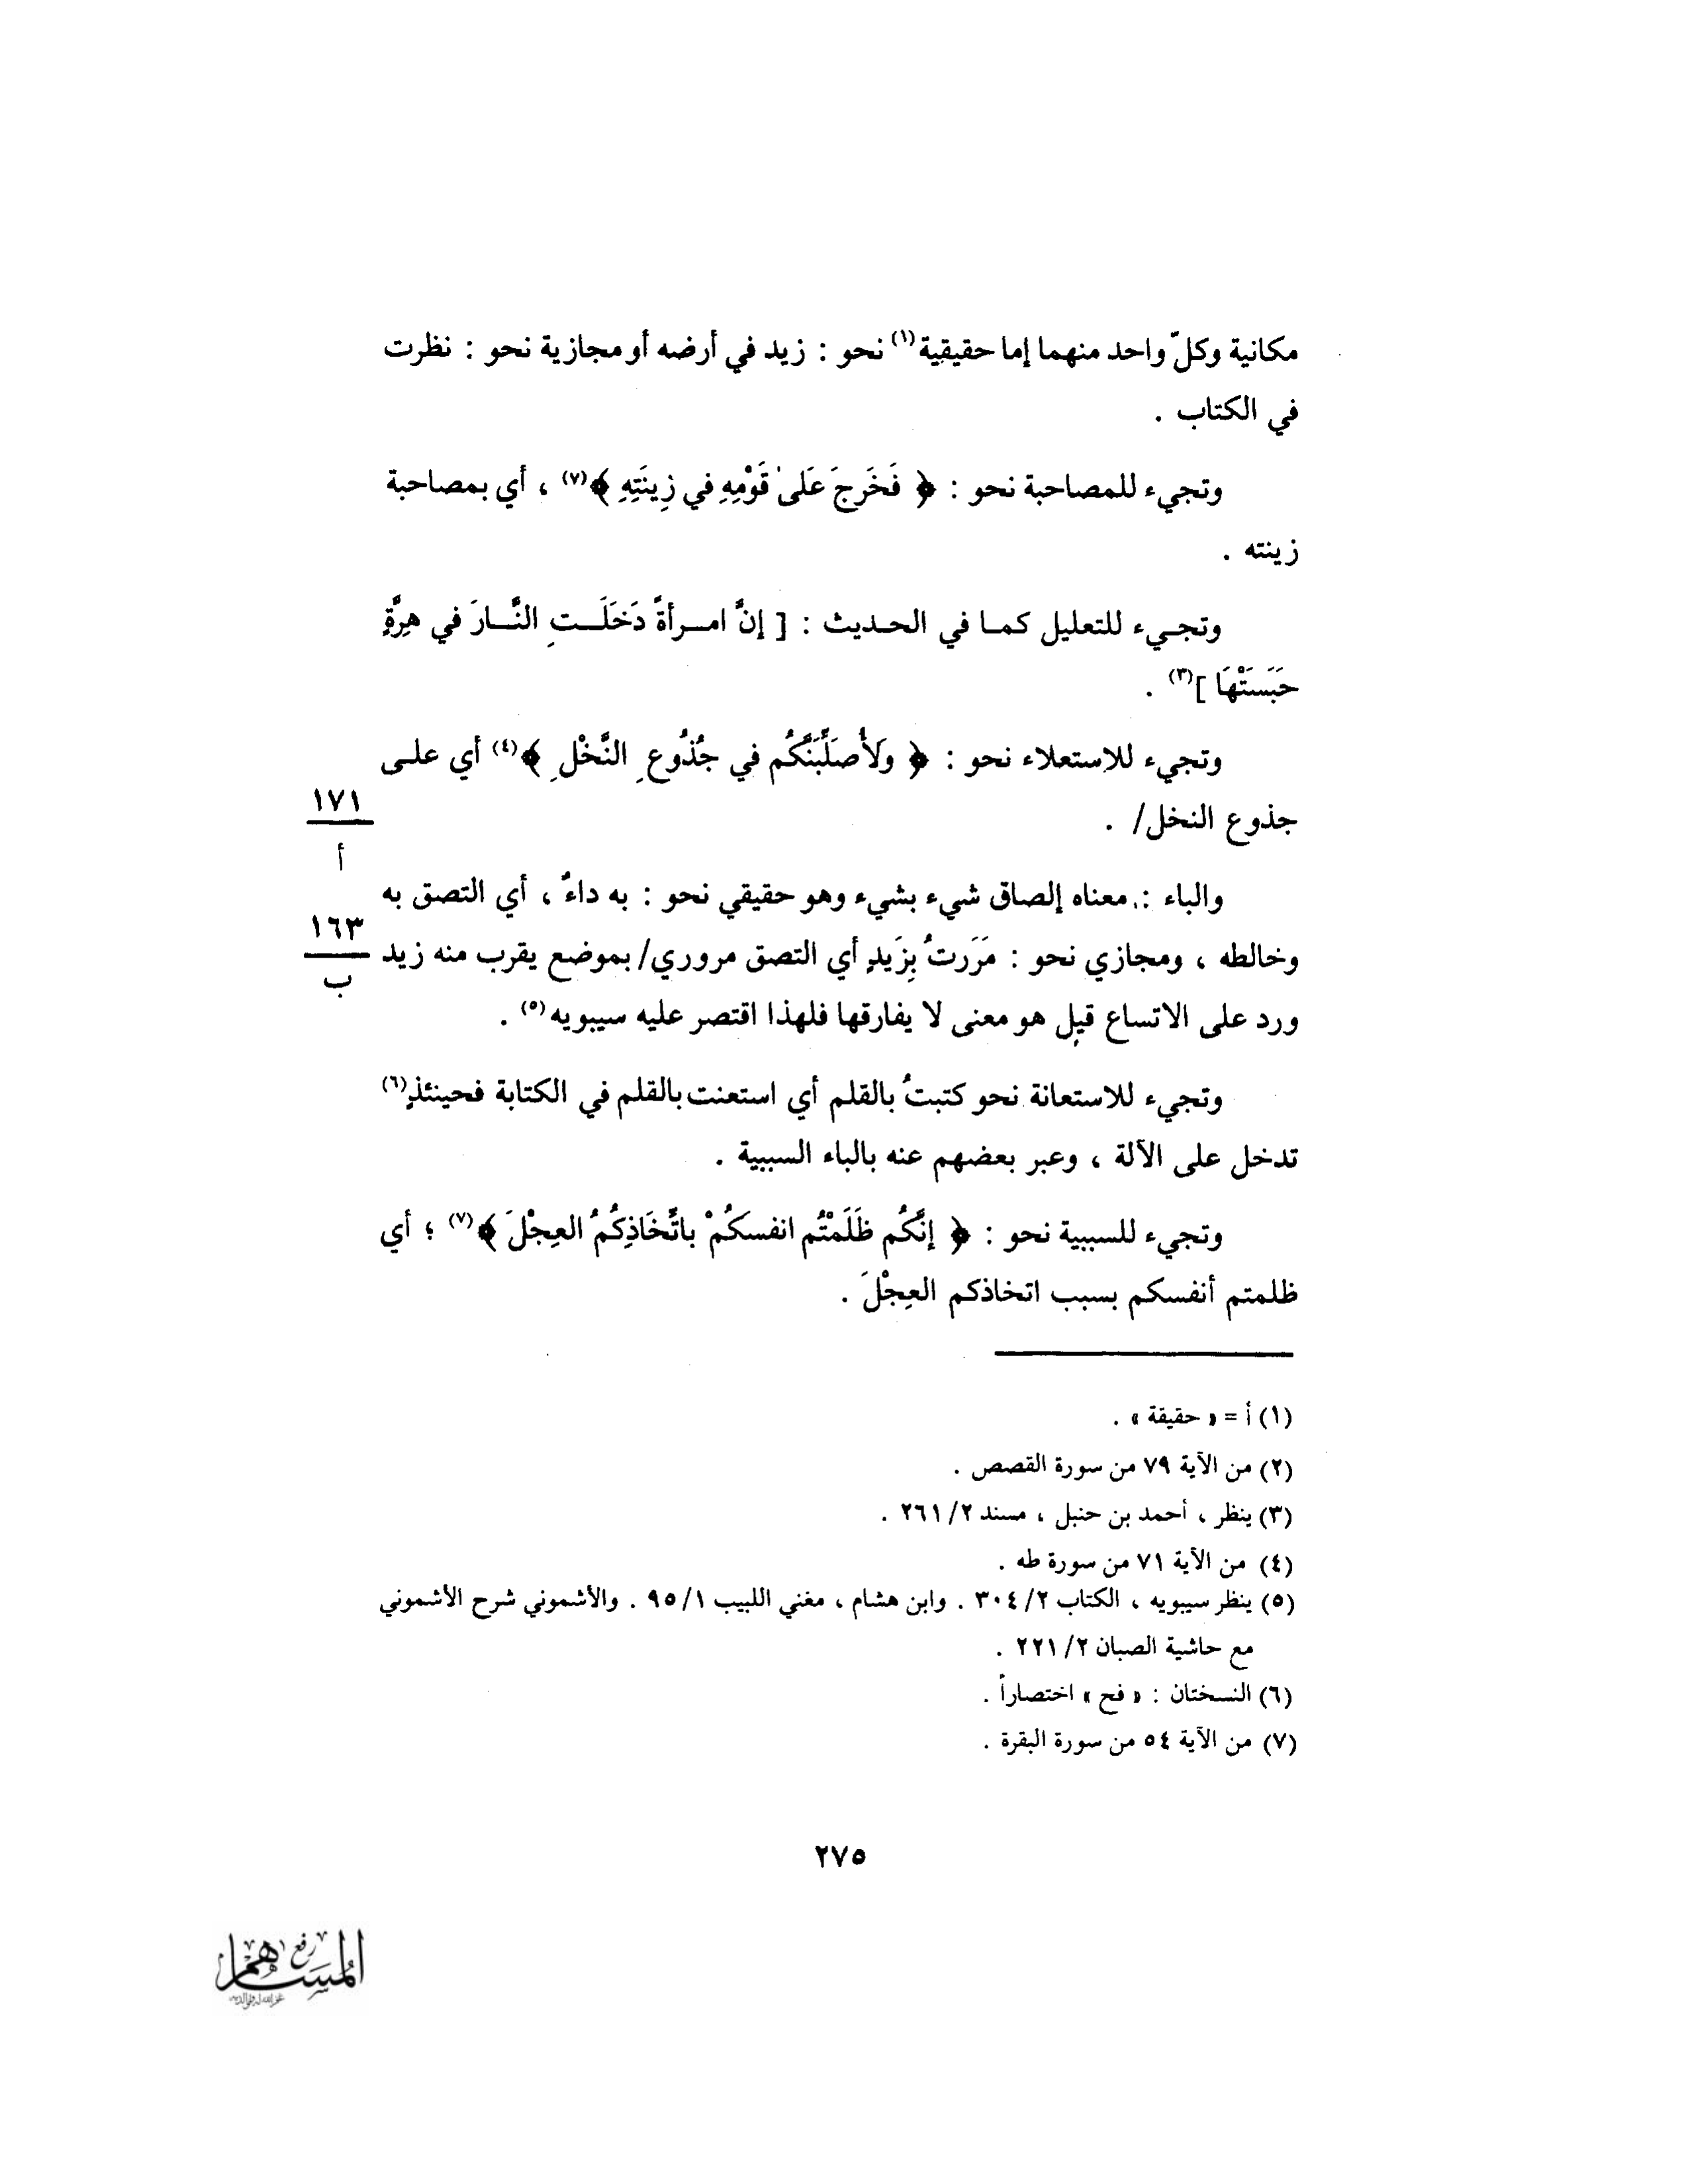 مكانية وكلّ واحد منهما إما حقيقية(١) نحو : زيد في أرضه أو مجازية نحو : نظرت
في الكتاب .
وتجيء للمصاحبة نحو : ﴿ فَخَرجَ عَلىٰ قَوْمِهِ في زِينَتِهِ ﴾(٧) ، أي بمصاحبة
زينته .
وتجيء للتعليل كما في الحديث : [ إنَّ امرأةً دَخَلَتِ النَّارَ في هِرَّةٍ
حَبَسَتْهَا ](٣) .
وتجيء للاستعلاء نحو : ﴿ وَلأُصَلِّبَنَّكُم في جُذُوعِ النَّخْلِ ﴾(٤) أي على
جذوع النخل/ .
١٧١
أ
والباء : معناه إلصاق شيء بشيء وهو حقيقي نحو : به داءٌ ، أي التصق به
١٦٣
ب
وخالطه ، ومجازي نحو : مَرَرتُ بِزَيدٍ أي التصق مروري/ بموضع يقرب منه زيد
ورد على الاتساع قيل هو معنى لا يفارقها فلهذا اقتصر عليه سيبويه(٥) .
وتجيء للاستعانة نحو كتبتُ بالقلم أي استعنت بالقلم في الكتابة فحينئذٍ(٦)
تدخل على الآلة ، وعبر بعضهم عنه بالباء السببية .
وتجيء للسببية نحو : ﴿ إنَّكُم ظَلَمْتُم انفسكُمْ باتِّخَاذِكُمُ العِجْلَ ﴾(٧) ؛ أي
ظلمتم أنفسكم بسبب اتخاذكم العِجْلَ .
(١) أ = « حقيقة » .
(٢) من الآية ٧٩ من سورة القصص .
(٣) ينظر ، أحمد بن حنبل ، مسند ٢/ ٢٦١ .
(٤) من الآية ٧١ من سورة طه .
(٥) ينظر سيبويه ، الكتاب ٢/ ٣٠٤ . وابن هشام ، مغني اللبيب ١/ ٩٥ . والأشموني شرح الأشموني
مع حاشية الصبان ٢/ ٢٢١ .
(٦) النسختان : « فح » اختصاراً .
(٧) من الآية ٥٤ من سورة البقرة .
٢٧٥